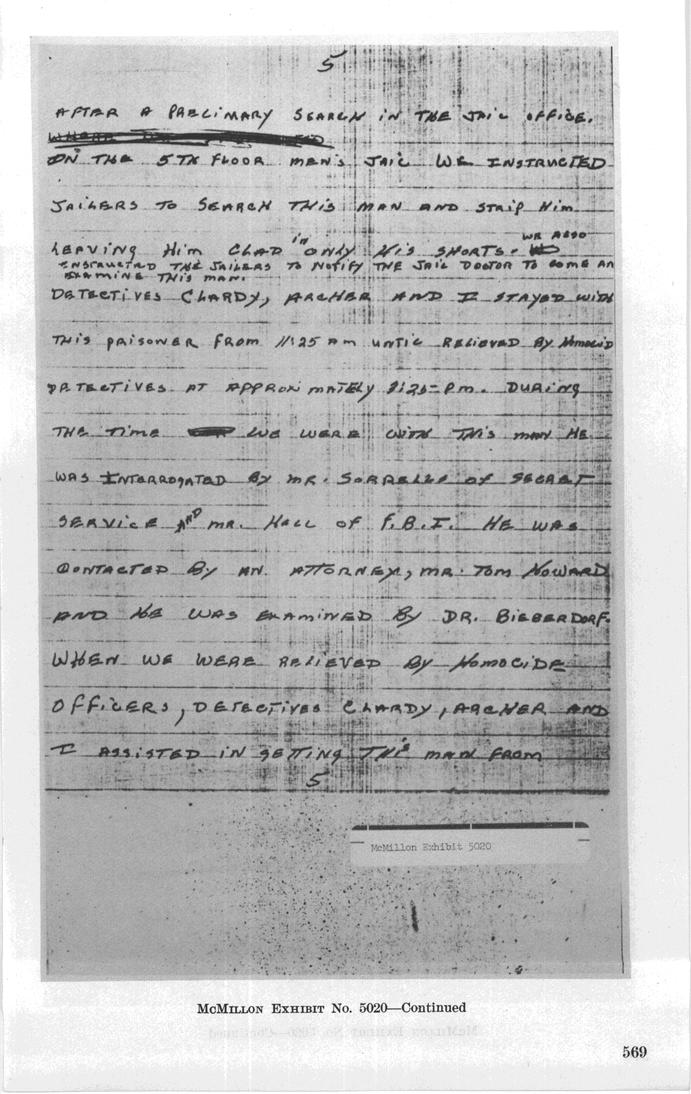 5
AFTER A PRELIMARY SEARCH IN THE JAIL OFFICE.
ON THE 5TH FLOOR MEN'S JAIL WE INSTRUCTED
JAILERS TO SEARCH THIS MAN AND STRIP HIM
LEAVING HIM CLAD IN ONLY HIS SHORTS. WE ALSO
INSTRUCTED THE JAILERS TO NOTIFY THE JAIL DOCTOR TO COME AN
EXAMINE THIS MAN.
DETECTIVES CLARDY, ARCHER AND I STAYED WITH
THIS PRISONER FROM 11:25 AM UNTIL RELIEVED BY HOMOCID
DETECTIVES AT APPROXIMATELY 3:25 PM. DURING
THE TIME WE WERE WITH THIS MAN HE
WAS INTERROGATED BY MR. SORRELLS OF SECRET
SERVICE AND MR. HALL OF F.B.I. HE WAS
CONTACTED BY AN ATTORNEY, MR. TOM HOWARD
AND HE WAS EXAMINED BY DR. BIEBERDORF.
WHEN WE WERE RELIEVED BY HOMOCIDE
OFFICERS, DETECTIVES CLARDY, ARCHER AND
I ASSISTED IN GETTING THE MAN FROM
5
McMillon Exhibit 5020
MCMILLON EXHIBIT No. 5020—Continued
569